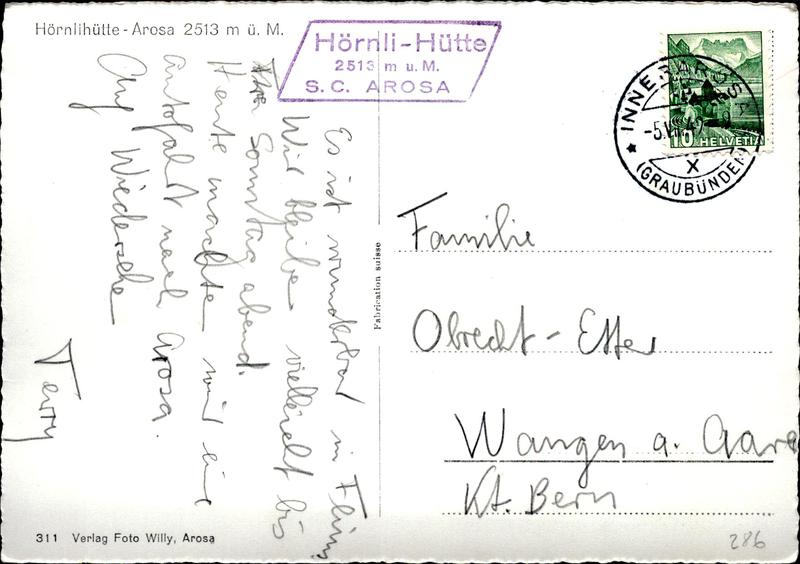 Hörnlihütte - Arosa 2513 m ü. M.
Hörnli-Hütte
2513 m u. M.
S. C. AROSA
INNERAROSA
-5.VII.
(GRAUBÜNDEN)
10 HELVETIA
Es ist wunderbar in Flims
Wir bleibe vielleicht bis
Sonntag abend.
Heute machte wir eine
Autofahrt nach Arosa.
Auf Wiedersehe
Terry
Fabrication suisse
Familie
Obrecht - Etter
Wangen a. Aare
Kt. Bern
311 Verlag Foto Willy, Arosa
286